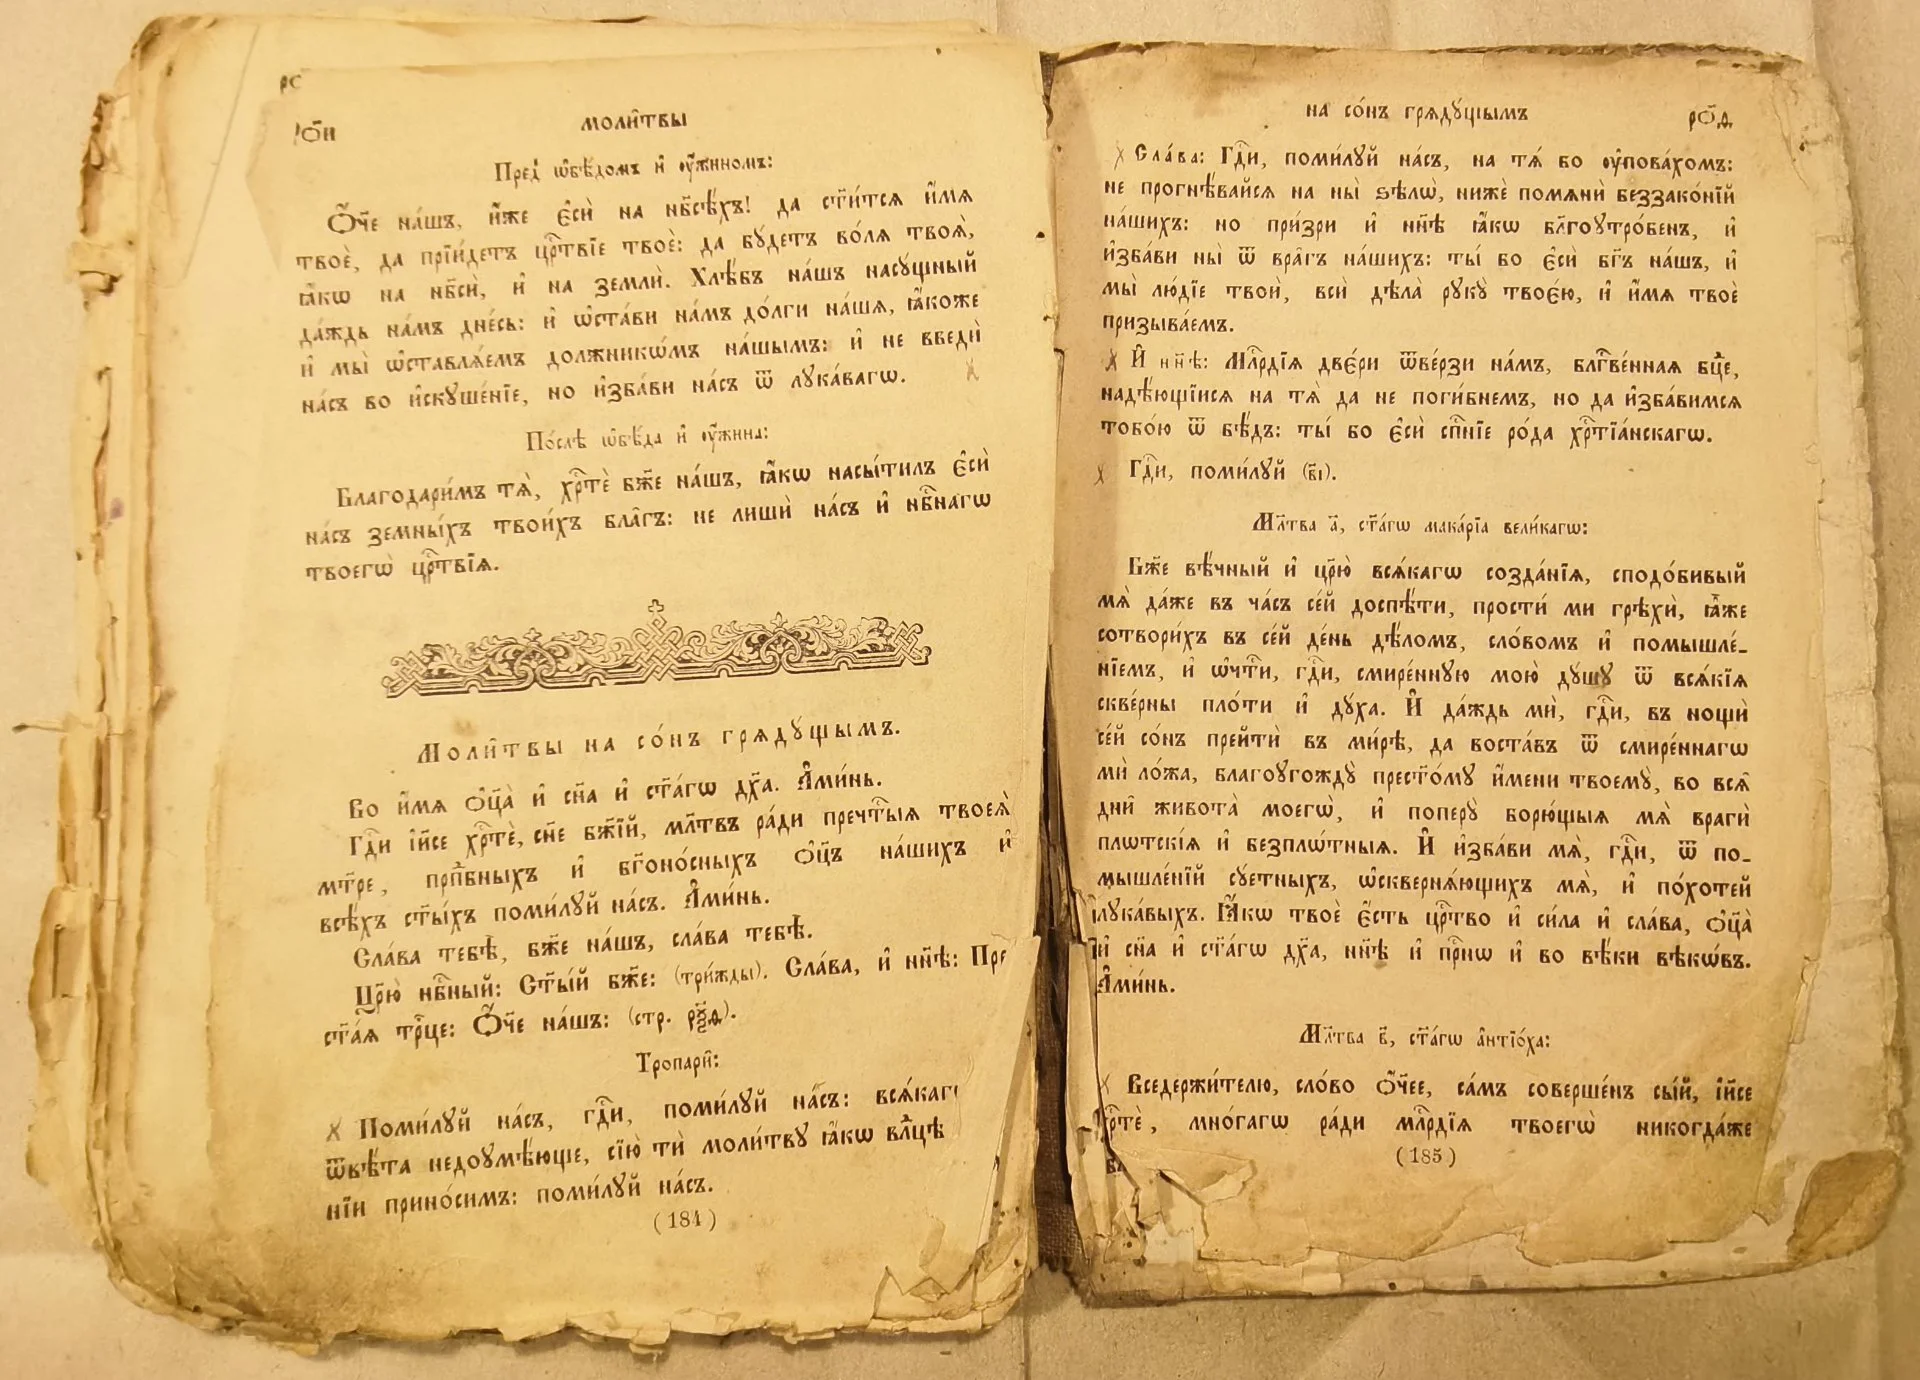 рс
ро҃и
моли̑твы
Пред̾ ѡ҆бѣ́домъ и҆ ѹ҆́жиномъ:
Ѻ҆́ч҃е на́шъ, и҆́же є҆сѝ на нб҃сѣ́хъ! да ст҃и́тсѧ и҆́мѧ
твоѐ, да прїи́детъ црⷭ҇твїе твоѐ: да бꙋ́детъ во́лѧ твоѧ̀,
ꙗ҆́кѡ на нб҃сѝ, и҆ на землѝ. Хлѣ́бъ на́шъ насꙋ́щный
да́ждь на́мъ дне́сь: и҆ ѡ҆ста́ви на́мъ до́лги на́шѧ, ꙗ҆́коже
и҆ мы̀ ѡ҆ставлѧ́емъ должникѡ́мъ на́шымъ: и҆ не введѝ
на́съ во и҆скꙋше́нїе, но и҆зба́ви на́съ ѿ лꙋка́вагѡ.
По́слѣ ѡ҆бѣ́да и҆ ѹ҆́жина:
Благодари́мъ тѧ̀, хрⷭ҇тѐ бж҃е на́шъ, ꙗ҆́кѡ насы́тилъ є҆сѝ
на́съ земны́хъ твои́хъ бла̑гъ: не лишѝ на́съ и҆ нбⷭ҇нагѡ
твоегѡ̀ црⷭ҇твїѧ.
Моли̑твы на со́нъ грѧдꙋ́щымъ.
Во и҆́мѧ ѻ҆ц҃а̀ и҆ сн҃а и҆ ст҃а́гѡ дх҃а. А҆ми́нь.
Гдⷭ҇и і҆и҃се хрⷭ҇тѐ, сн҃е бж҃їй, мл҃твъ ра́ди пречⷭ҇тыѧ твоеѧ̀
мт҃ре, прпⷣбныхъ и҆ бг҃оно́сныхъ ѻ҆ц҃ъ на́шихъ и҆
всѣ́хъ ст҃ы́хъ поми́лꙋй на́съ. А҆ми́нь.
Сла́ва тебѣ̀, бж҃е на́шъ, сла́ва тебѣ̀.
Цр҃ю̀ нбⷭ҇ный: Ст҃ы́й бж҃е: (три́жды). Сла́ва, и҆ нн҃ѣ: Пре
ст҃а́ѧ трⷪ҇це: Ѻ҆́ч҃е на́шъ: (стр. ро҃д).
Тропари̑:
Поми́лꙋй на́съ, гдⷭ҇и, поми́лꙋй на́съ: всѧ́каг
ѿвѣ́та недоꙋмѣ́юще, сїю̀ тѝ моли́твꙋ ꙗ҆́кѡ влⷣцѣ
нїи прино́симъ: поми́лꙋй на́съ.
(184)
на со́нъ грѧдꙋ́щымъ
ро҃д
Сла́ва: Гдⷭ҇и, поми́лꙋй на́съ, на тѧ́ бо ѹ҆пова́хомъ:
не прогнѣ́вайсѧ на ны̀ ѕѣлѡ̀, нижѐ помѧнѝ беззако́нїй
на́шихъ: но при́зри и҆ нн҃ѣ ꙗ҆́кѡ бл҃гоꙋтро́бенъ, и҆
и҆зба́ви ны̀ ѿ вра̑гъ на́шихъ: ты́ бо є҆сѝ бг҃ъ на́шъ, и҆
мы̀ лю́дїе твоѝ, всѝ дѣла̀ рꙋкꙋ̀ твоє́ю, и҆ и҆́мѧ твоѐ
призыва́емъ.
И҆ нн҃ѣ: Млⷭ҇рдїѧ двє́ри ѿве́рзи на́мъ, блгⷭ҇ве́ннаѧ бцⷣе,
надѣ́ющїисѧ на тѧ̀ да не поги́бнемъ, но да и҆зба́вимсѧ
тобо́ю ѿ бѣ́дъ: ты́ бо є҆сѝ спⷭ҇нїе ро́да хрⷭ҇тїа́нскагѡ.
Гдⷭ҇и, поми́лꙋй (в҃і).
Мл҃тва а҃, ст҃а́гѡ мака́рїа вели́кагѡ:
Бж҃е вѣ́чный и҆ цр҃ю̀ всѧ́кагѡ созда́нїѧ, сподо́бивый
мѧ̀ да́же въ ча́съ се́й доспѣ́ти, прости́ ми грѣхѝ, ꙗ҆̀же
сотвори́хъ въ се́й де́нь дѣ́ломъ, сло́вомъ и҆ помышле́-
нїемъ, и҆ ѡ҆чⷭ҇ти, гдⷭ҇и, смире́ннꙋю мою̀ дꙋ́шꙋ ѿ всѧ́кїѧ
скве́рны пло́ти и҆ дꙋ́ха. И҆ да́ждь мѝ, гдⷭ҇и, въ нощѝ
се́й со́нъ прейтѝ въ ми́рѣ, да воста́въ ѿ смире́ннагѡ
мѝ ло́жа, благоꙋгождꙋ̀ прест҃о́мꙋ и҆́мени твоемꙋ̀, во всѧ̑
дни̑ живота̀ моегѡ̀, и҆ поперꙋ̀ борю́щыѧ мѧ̀ врагѝ
плѡтскі́ѧ и҆ безплѡ́тныѧ. И҆ и҆зба́ви мѧ̀, гдⷭ҇и, ѿ по-
мышле́нїй сꙋ́етныхъ, ѡ҆сквернѧ́ющихъ мѧ̀, и҆ по́хотей
лꙋка́выхъ. Ꙗ҆́кѡ твоѐ є҆́сть црⷭ҇тво и҆ си́ла и҆ сла́ва, ѻ҆ц҃а̀
и҆ сн҃а и҆ ст҃а́гѡ дх҃а, нн҃ѣ и҆ прⷭ҇нѡ и҆ во вѣ́ки вѣкѡ́въ.
А҆ми́нь.
Мл҃тва в҃, ст҃а́гѡ а҆нтїо́ха:
Вседержи́телю, сло́во ѻ҆́ч҃ее, са́мъ соверше́нъ сы́й, і҆и҃се
хрⷭ҇тѐ, мно́гагѡ ра́ди млⷭ҇рдїѧ твоегѡ̀ никогда́же
(185)